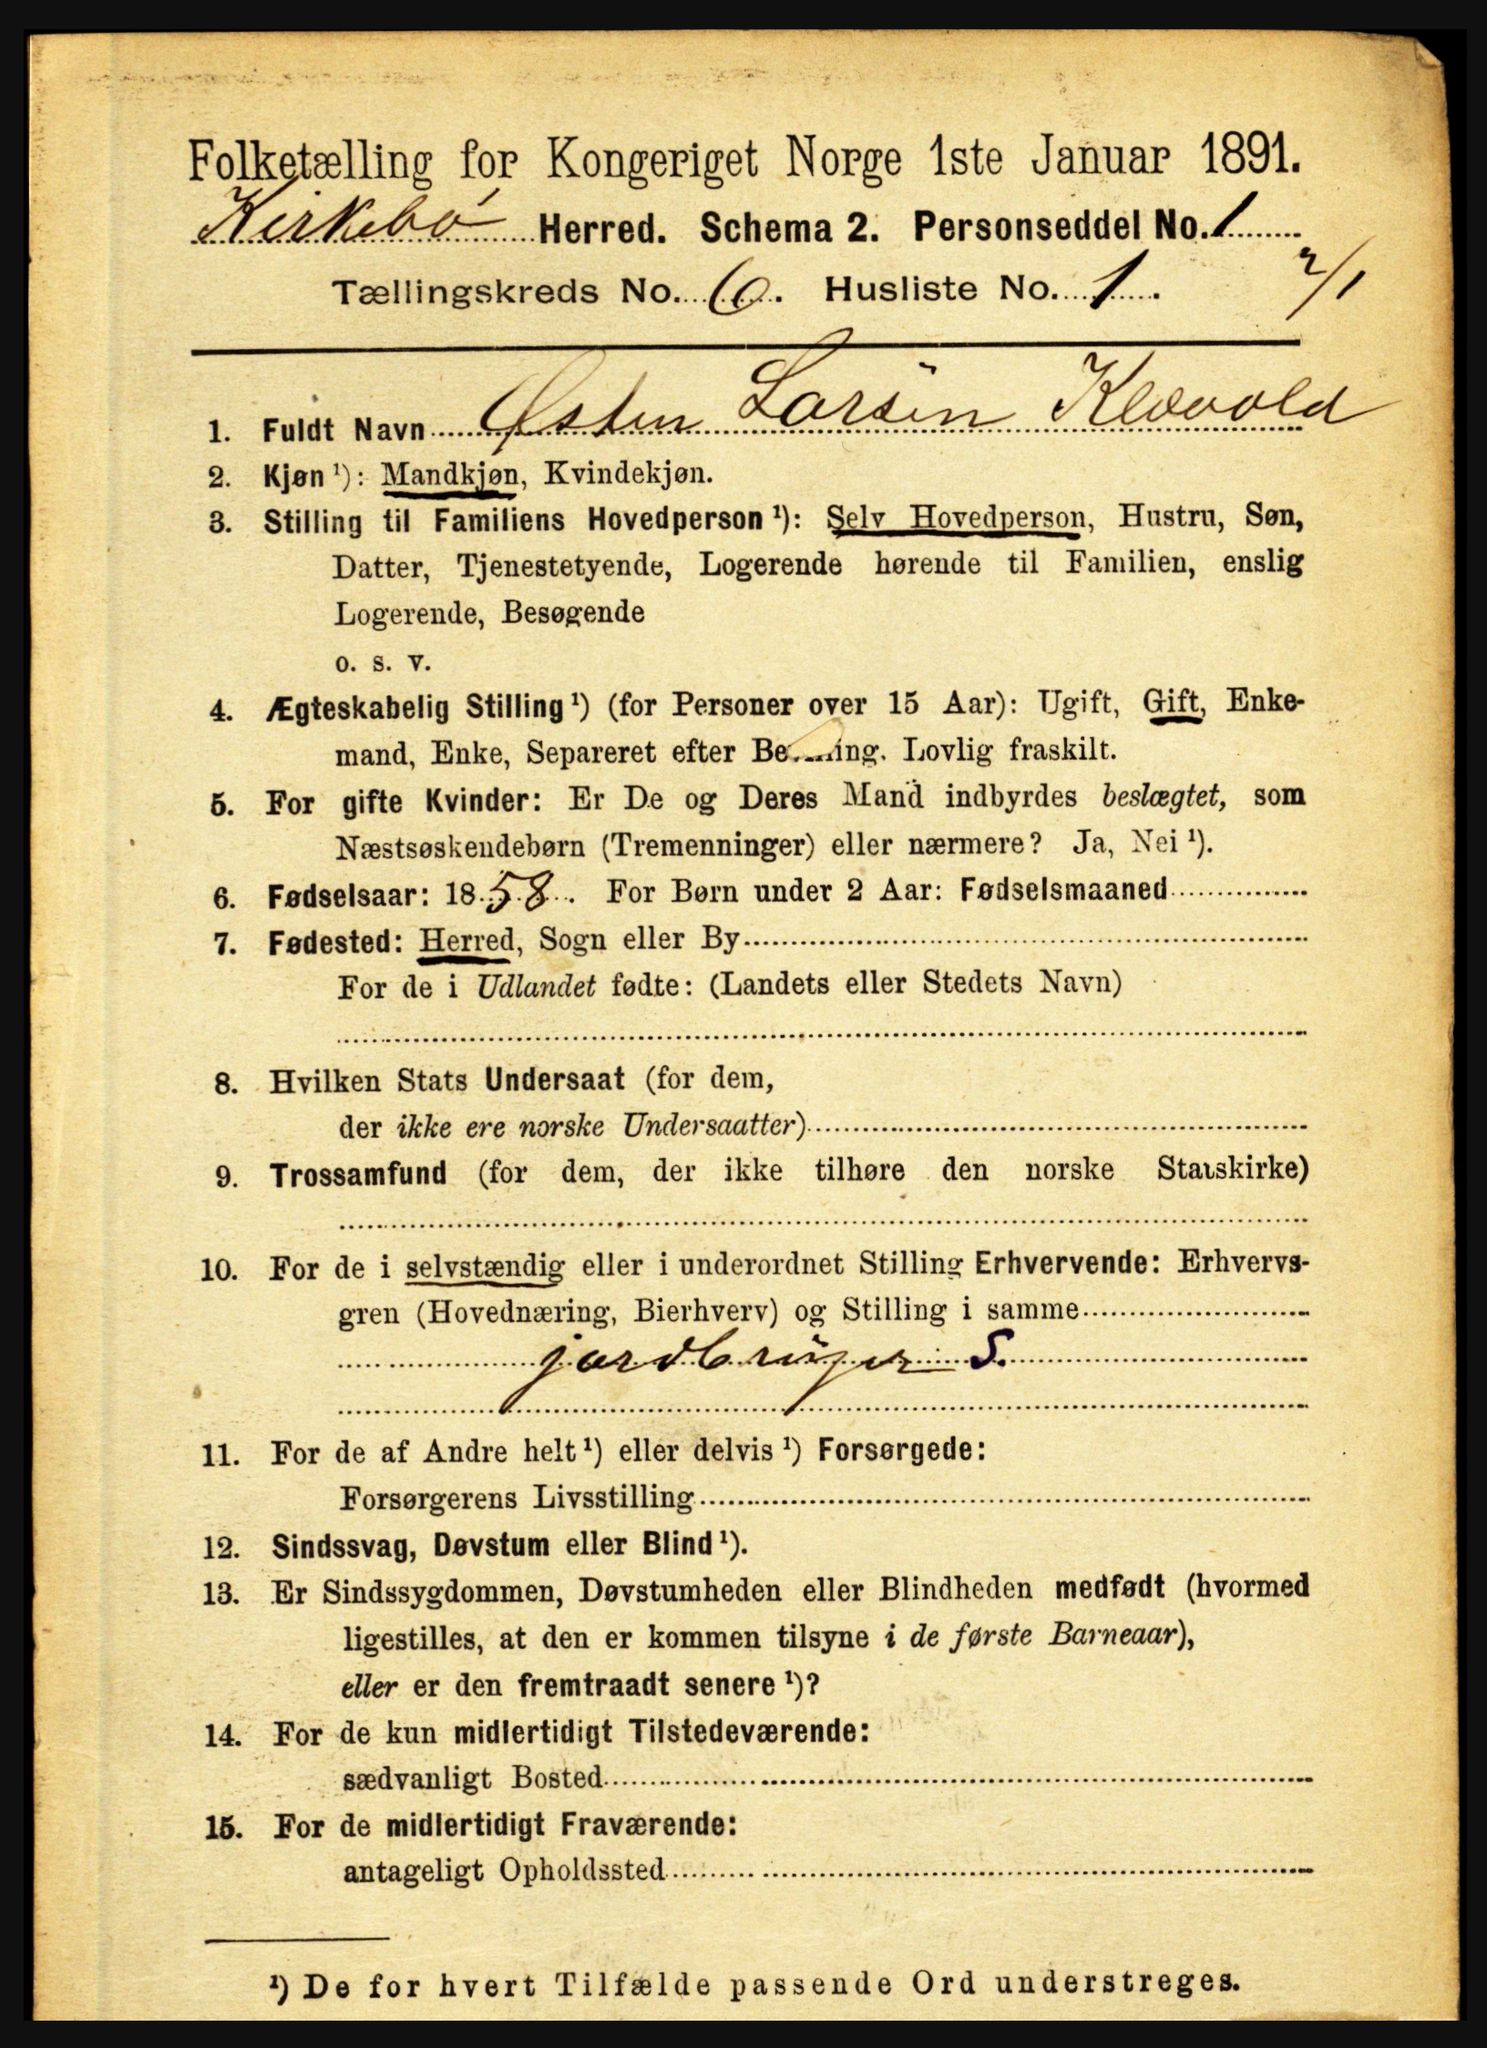 Folketælling for Kongeriget Norge 1ste Januar 1891.
Kirkebø Herred. Schema 2. Personseddel No. 1
Tællingskreds No. 6. Husliste No. 1. 2/1
1. Fuldt Navn Østen Larsen Klævold
2. Kjøn ¹): Mandkjøn, Kvindekjøn.
3. Stilling til Familiens Hovedperson ¹): Selv Hovedperson, Hustru, Søn,
Datter, Tjenestetyende, Logerende hørende til Familien, enslig
Logerende, Besøgende
o. s. v.
4. Ægteskabelig Stilling ¹) (for Personer over 15 Aar): Ugift, Gift, Enke-
mand, Enke, Separeret efter Bevilling. Lovlig fraskilt.
5. For gifte Kvinder: Er De og Deres Mand indbyrdes beslægtet, som
Næstsøskendebørn (Tremenninger) eller nærmere? Ja, Nei ¹).
6. Fødselsaar: 1858. For Børn under 2 Aar: Fødselsmaaned
7. Fødested: Herred, Sogn eller By
For de i Udlandet fødte: (Landets eller Stedets Navn)
8. Hvilken Stats Undersaat (for dem,
der ikke ere norske Undersaatter)
9. Trossamfund (for dem, der ikke tilhøre den norske Statskirke)
10. For de i selvstændig eller i underordnet Stilling Erhvervende: Erhvervs-
gren (Hovednæring, Bierhverv) og Stilling i samme
jordbruger S.
11. For de af Andre helt ¹) eller delvis ¹) Forsørgede:
Forsørgerens Livsstilling
12. Sindssvag, Døvstum eller Blind ¹).
13. Er Sindssygdommen, Døvstumheden eller Blindheden medfødt (hvormed
ligestilles, at den er kommen tilsyne i de første Barneaar),
eller er den fremtraadt senere ¹)?
14. For de kun midlertidigt Tilstedeværende:
sædvanligt Bosted
15. For de midlertidigt Fraværende:
antageligt Opholdssted
¹) De for hvert Tilfælde passende Ord understreges.